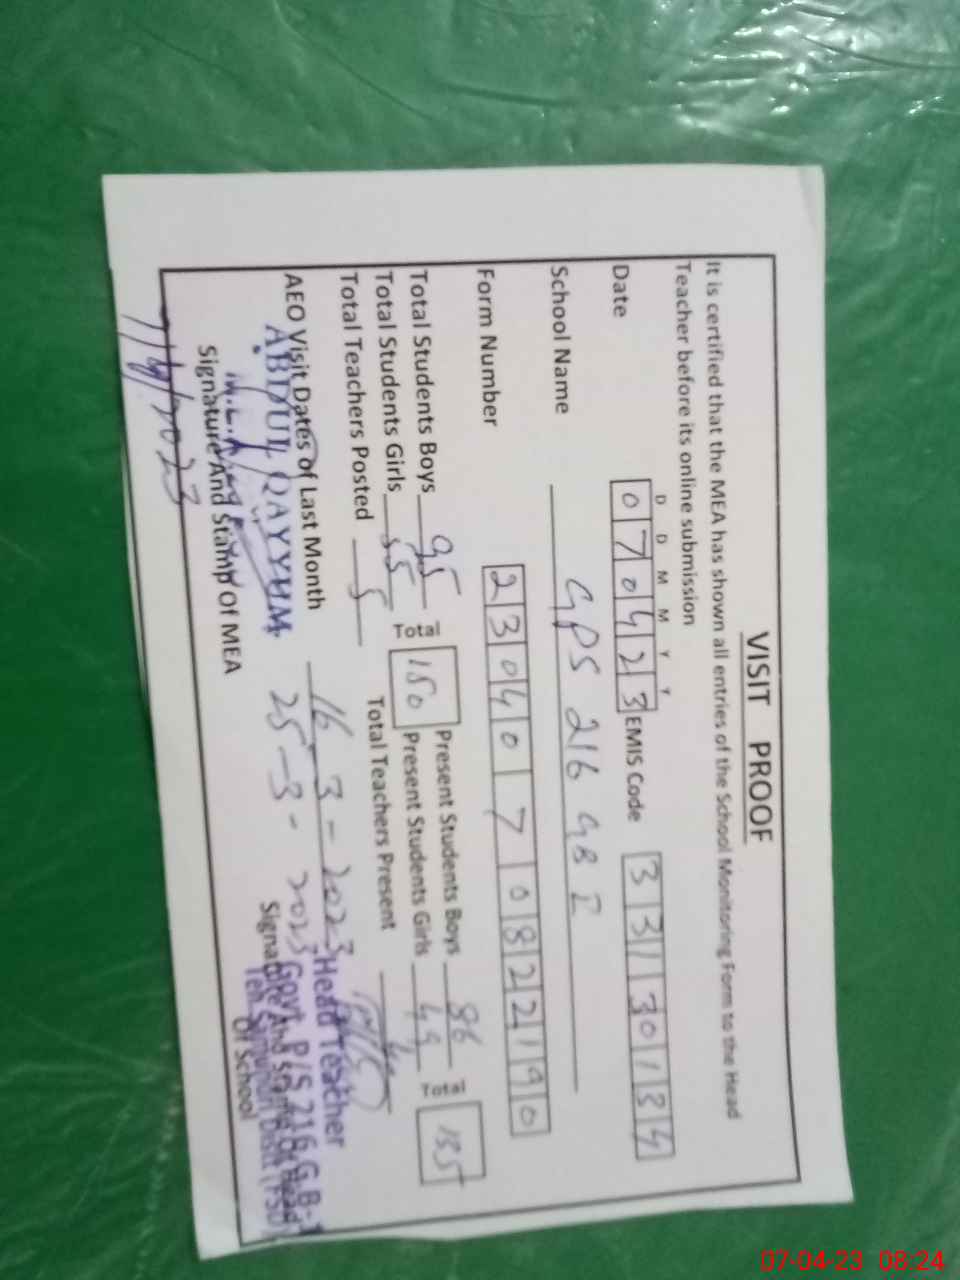 VISIT PROOF
It is certified that the MEA has shown all entries of the School Monitoring Form to the Head
Teacher before its online submission
D D M M Y Y
Date 070423 EMIS Code 33130134
School Name GPS 216 GB I
Form Number 2304070822190
Total Students Boys 95 Present Students Boys 86
Total 150 Total 135
Total Students Girls 55 Present Students Girls 49
Total Teachers Posted 5 Total Teachers Present
AEO Visit Dates of Last Month 16-3-2023
25-3-2023
ABIDUL QAYYUM
Signature And Stamp Of MEA
7/4/2023
Head Teacher
Govt. P/S 216 G.B-1
Signature And Stamp Of Head
Of School
07-04-23 08:24